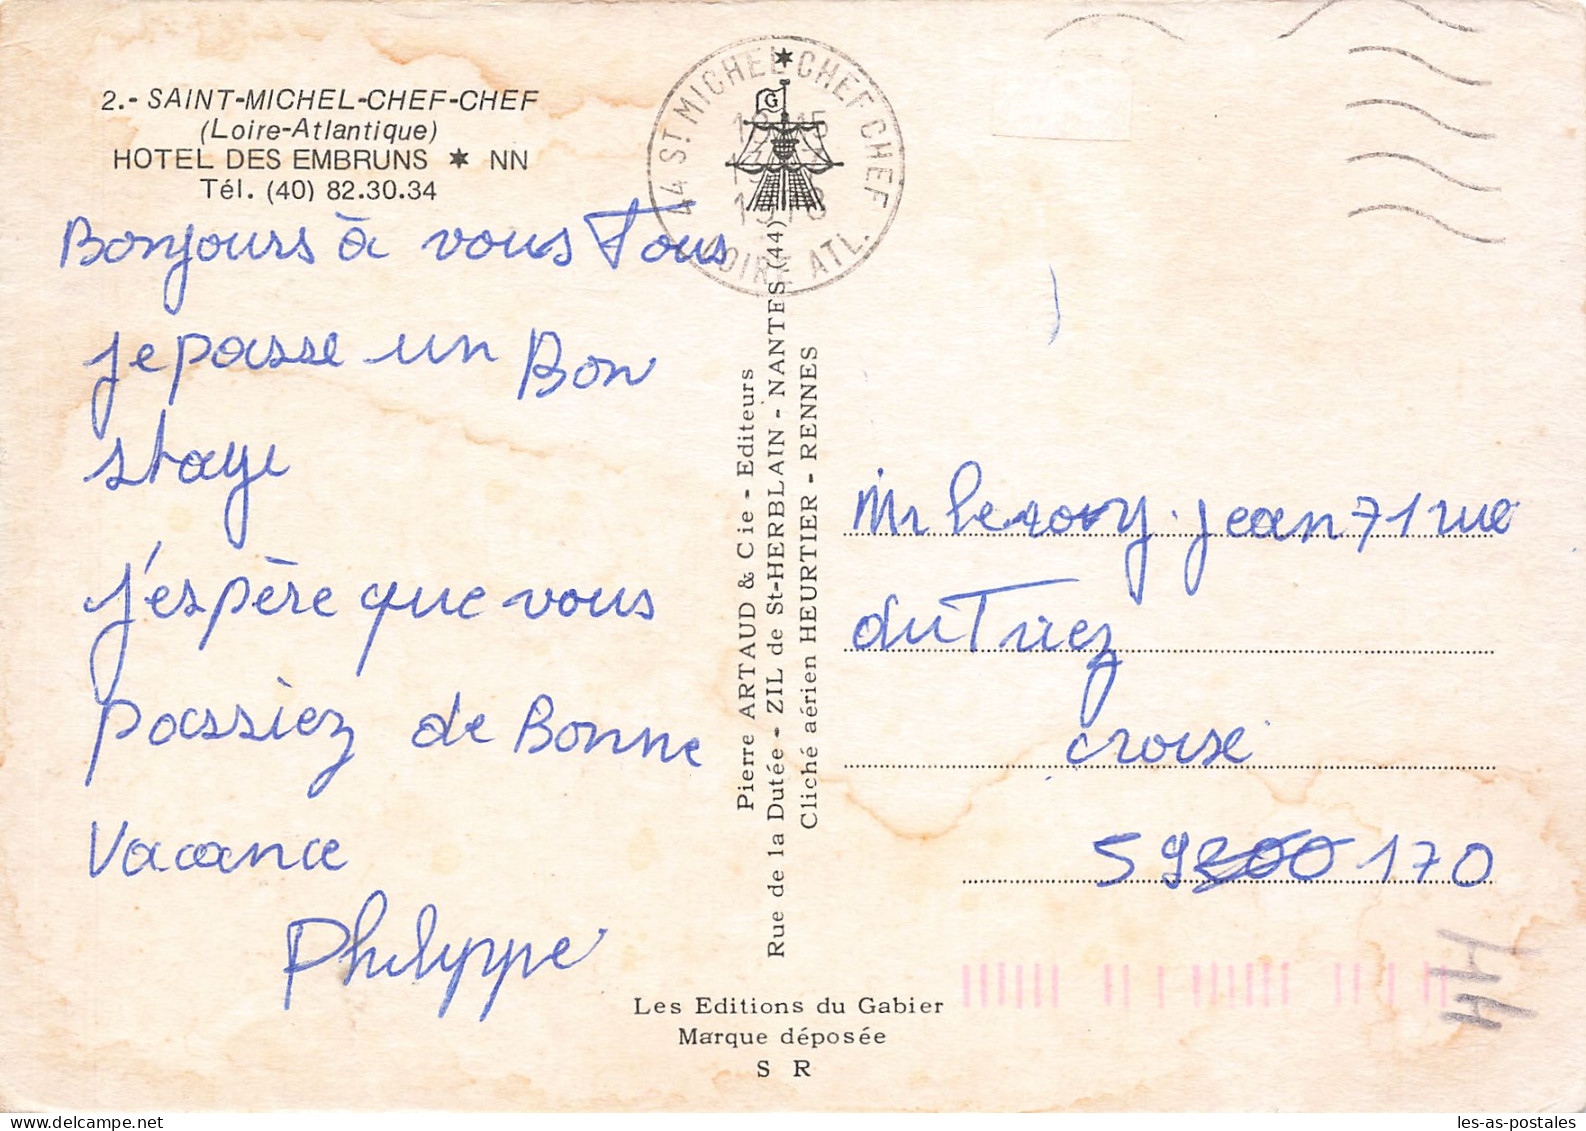 2.- SAINT-MICHEL-CHEF-CHEF
(Loire-Atlantique)
HOTEL DES EMBRUNS ✶ NN
Tél. (40) 82.30.34
Bonjours à vous Tous
je passe un Bon
stage
j'espère que vous
passiez de Bonne
Vacance
Philyppe
44 ST MICHEL CHEF CHEF
LOIRE ATL.
G
Pierre ARTAUD & Cie - Editeurs
Rue de la Dutée - ZIL de St-HERBLAIN - NANTES (44)
Cliché aérien HEURTIER - RENNES
Mr Leroy Jean 71 rue
du Triez
croise
59200 170
44
Les Editions du Gabier
Marque déposée
S R
les-as-postales